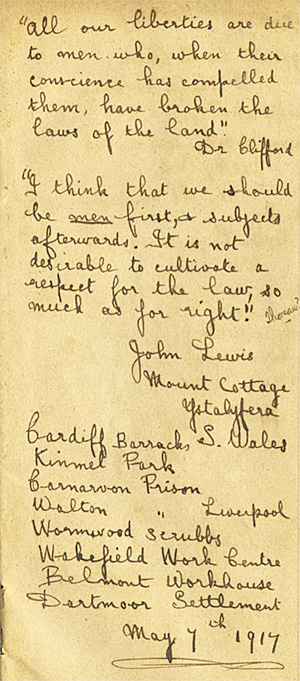 "All our liberties are due
to men who, when their
conscience has compelled
them, have broken the
laws of the land."
Dr Clifford
"I think that we should
be men first, & subjects
afterwards. It is not
desirable to cultivate a
respect for the law, so
much as for right." Thoreau
John Lewis
Mount Cottage
Ystalyfera
Cardiff Barracks, S. Wales
Kinmel Park
Carnarvon Prison
Walton " Liverpool
Wormwood Scrubbs
Wakefield Work Centre
Belmont Workhouse
Dartmoor Settlement
May 7th 1917